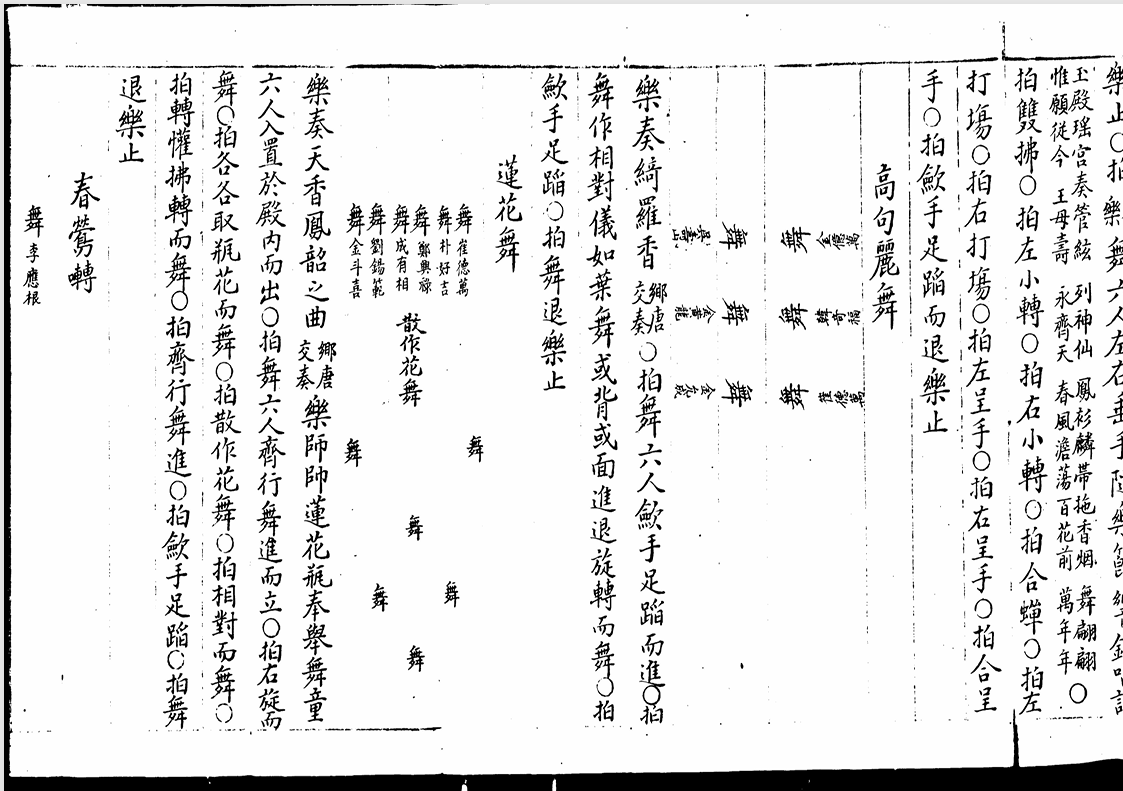 樂止○拍樂舞六人左右垂手隨樂節
玉殿瑤宮奏管絃 列神仙 鳳衫麟帶拖香烟 舞翩翩
惟願從今 王母壽 永齊天 春風澹蕩百花前 萬年年 ○
拍雙拂○拍左小轉○拍右小轉○拍合蟬○拍左
打塲○拍右打塲○拍左呈手○拍右呈手○拍合呈
手○拍斂手足蹈而退樂止
高句麗舞
舞 金德萬 舞 韓奇福 舞 崔德萬
舞 吳壽山 舞 舞
樂奏綺羅香 鄉唐交奏 ○拍舞六人斂手足蹈而進○拍
舞作相對儀如葉舞或背或面進退旋轉而舞○拍
斂手足蹈○拍舞退樂止
蓮花舞
舞 崔德萬
舞 朴好吉
舞 鄭興祿
舞 成有相
舞 劉錫範
舞 金斗喜
散作花舞
舞
舞
舞
舞
舞
舞
樂奏天香鳳韶之曲 鄉唐交奏 樂師帥蓮花甁奉舉舞童
六人入置於殿內而出○拍舞六人齊行舞進而立○拍右旋而
舞○拍各各取甁花而舞○拍散作花舞○拍相對而舞○
拍轉懽拂轉而舞○拍齊行舞進○拍斂手足蹈○拍舞
退樂止
春鶯囀
舞 李應根